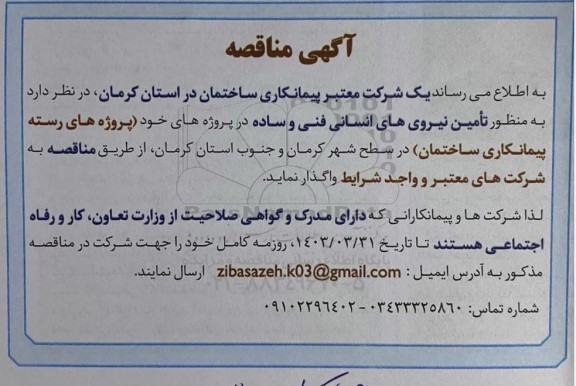 آگهی مناقصه
به اطلاع می رساند یک شرکت معتبر پیمانکاری ساختمان در استان کرمان، در نظر دارد
به منظور تأمین نیروی های انسانی فنی و ساده در پروژه های خود (پروژه های رسته
پیمانکاری ساختمان) در سطح شهر کرمان و جنوب استان کرمان، از طریق مناقصه به
شرکت های معتبر و واجد شرایط واگذار نماید.
لذا شرکت ها و پیمانکارانی که دارای مدرک و گواهی صلاحیت از وزارت تعاون، کار و رفاه
اجتماعی هستند تا تاریخ ۱۴۰۳/۰۳/۳۱، روزمه کامل خود را جهت شرکت در مناقصه
مذکور به آدرس ایمیل : zibasazeh.k03@gmail.com ارسال نمایند.
شماره تماس: ۰۳۴۳۳۳۲۵۸۶۰ - ۰۹۱۰۲۲۹۶۴۰۲